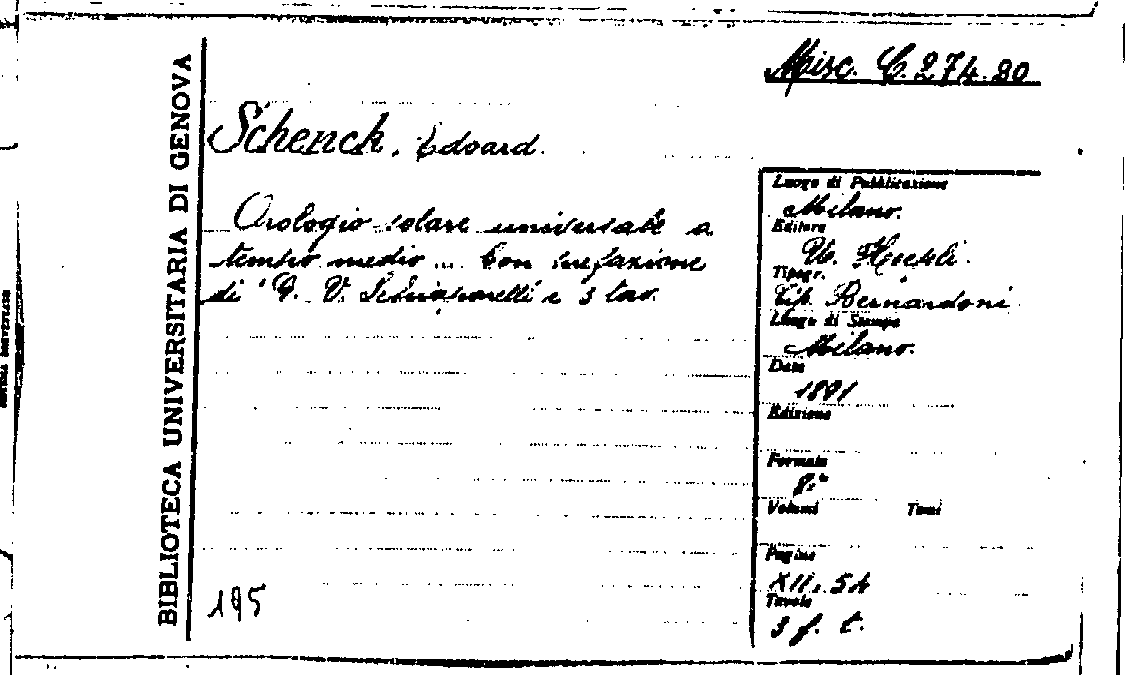 BIBLIOTECA UNIVERSITARIA DI GENOVA
Misc. C. 274.20
Schench, Edoard.
Orologio solare universale a
tempo medio ... Con prefazione
di G. V. Schiaparelli e 3 tav.
195
Luogo di Pubblicazione
Milano.
Editore
U. Hoepli.
Tipogr.
Tip. Bernardoni
Luogo di Stampa
Milano.
Data
1891
Edizione
Formato
8.°
Volumi Tomi
Pagine
XII, 54
Tavole
3 f. t.